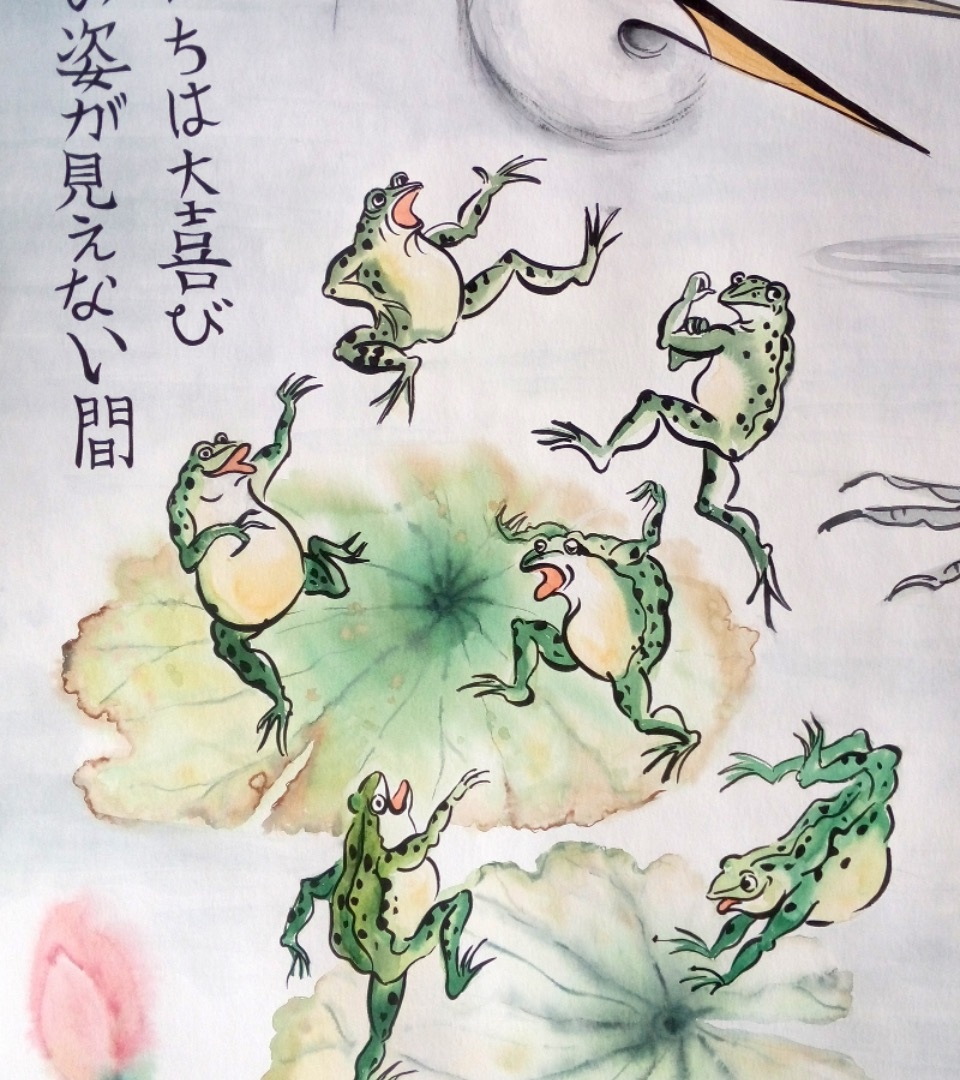 ちは大喜び
姿が見えない間